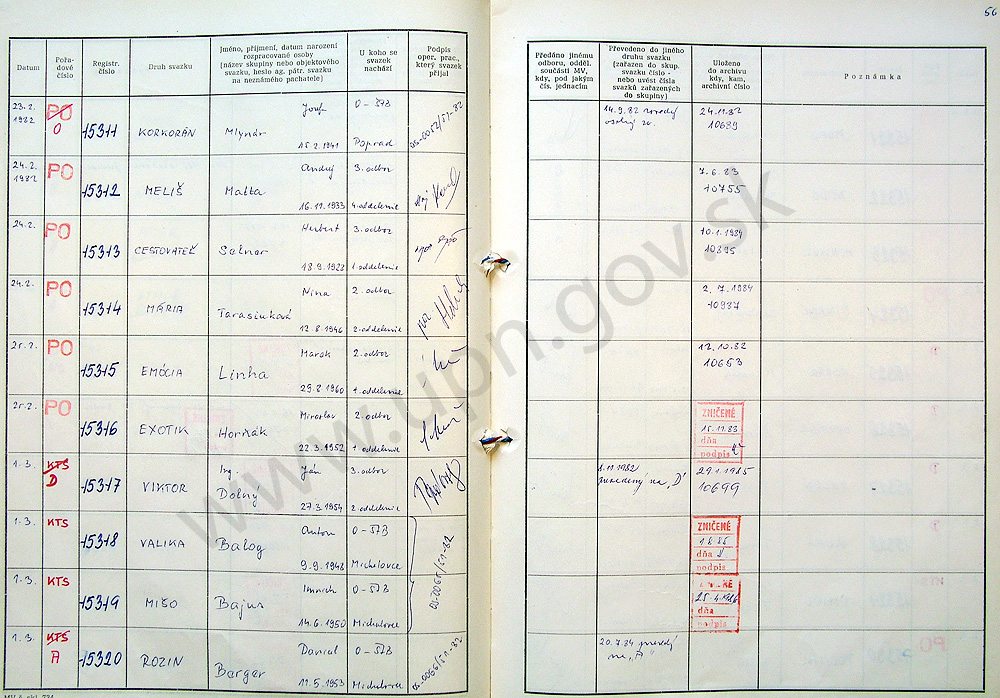 56
Datum
Pořa-
dové
číslo
Registr.
číslo
Druh svazku
Jméno, příjmení, datum narození
rozpracované osoby
(název skupiny nebo objektového
svazku, heslo ag. pátr. svazku
na neznámého pachatele)
U koho se
svazek
nachází
Podpis
oper. prac.,
který svazek
přijal
Předáno jinému
odboru, odděl.
součásti MV,
kdy, pod jakým
čís. jednacím
Převedeno do jiného
druhu svazku
(zařazen do skup.
svazku číslo -
nebo uvést čísla
svazků zařazených
do skupiny)
Uloženo
do archivu
kdy, kam,
archivní číslo
Poznámka
23.2.
1982
PO
O
15311
KORKORÁN
Jozef
Mlynár
15.2.1941
O-ŠTB
Poprad
OS-0052/51-82
14.9.82
24.11.82
10689
24.2.
1982
PO
15312
MELIŠ
Andrej
Matta
16.11.1933
3. odbor
4. oddelenie
7.6.83
10755
24.2.
PO
15313
CESTOVATEĽ
Herbert
18.9.1923
3. odbor
1. oddelenie
10.1.1984
10895
24.2.
PO
15314
MÁRIA
Nina
Tarasiuková
12.8.1946
2. odbor
2. oddelenie
2.7.1984
10987
25.2.
PO
15315
EMÓCIA
Marek
Linha
29.8.1960
2. odbor
1. oddelenie
12.10.82
10653
25.2.
PO
15316
EXOTIK
Miroslav
Horňák
22.3.1952
2. odbor
1. oddelenie
ZNIČENÉ
15.11.83
dňa
podpis
1.3.
KTS
D
15317
VIKTOR
Ing. Ján
Dolný
27.3.1954
3. odbor
2. oddelenie
1.11.1982
prevedený na "D"
29.1.1985
10699
1.3.
KTS
15318
VALIKA
Anton
Balog
9.9.1948
O-ŠTB
Michalovce
OS-0065/51-82
ZNIČENÉ
dňa
podpis
1.3.
KTS
15319
MIŠO
Imrich
Bajus
14.6.1950
O-ŠTB
Michalovce
25.4.1986
dňa
podpis
1.3.
KTS
A
15320
ROZIN
Daniel
Berger
11.5.1953
O-ŠTB
Michalovce
OS-0066/51-82
20.7.84
na "A"
www.upn.gov.sk